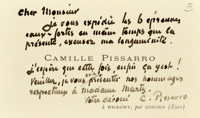 3.
Cher Monsieur
Je vous expédie les 6 épreuves
eaux-fortes en même temps que la
présente, excusez ma longuminité.
CAMILLE PISSARRO
J'espère que cette fois, enfin ça y est !
Veuillez, je vous prie présenter nos hommages
respectueux à Madame Marty.
Votre dévoué C. Pissarro
à ÉRAGNY, par GISORS (Eure)